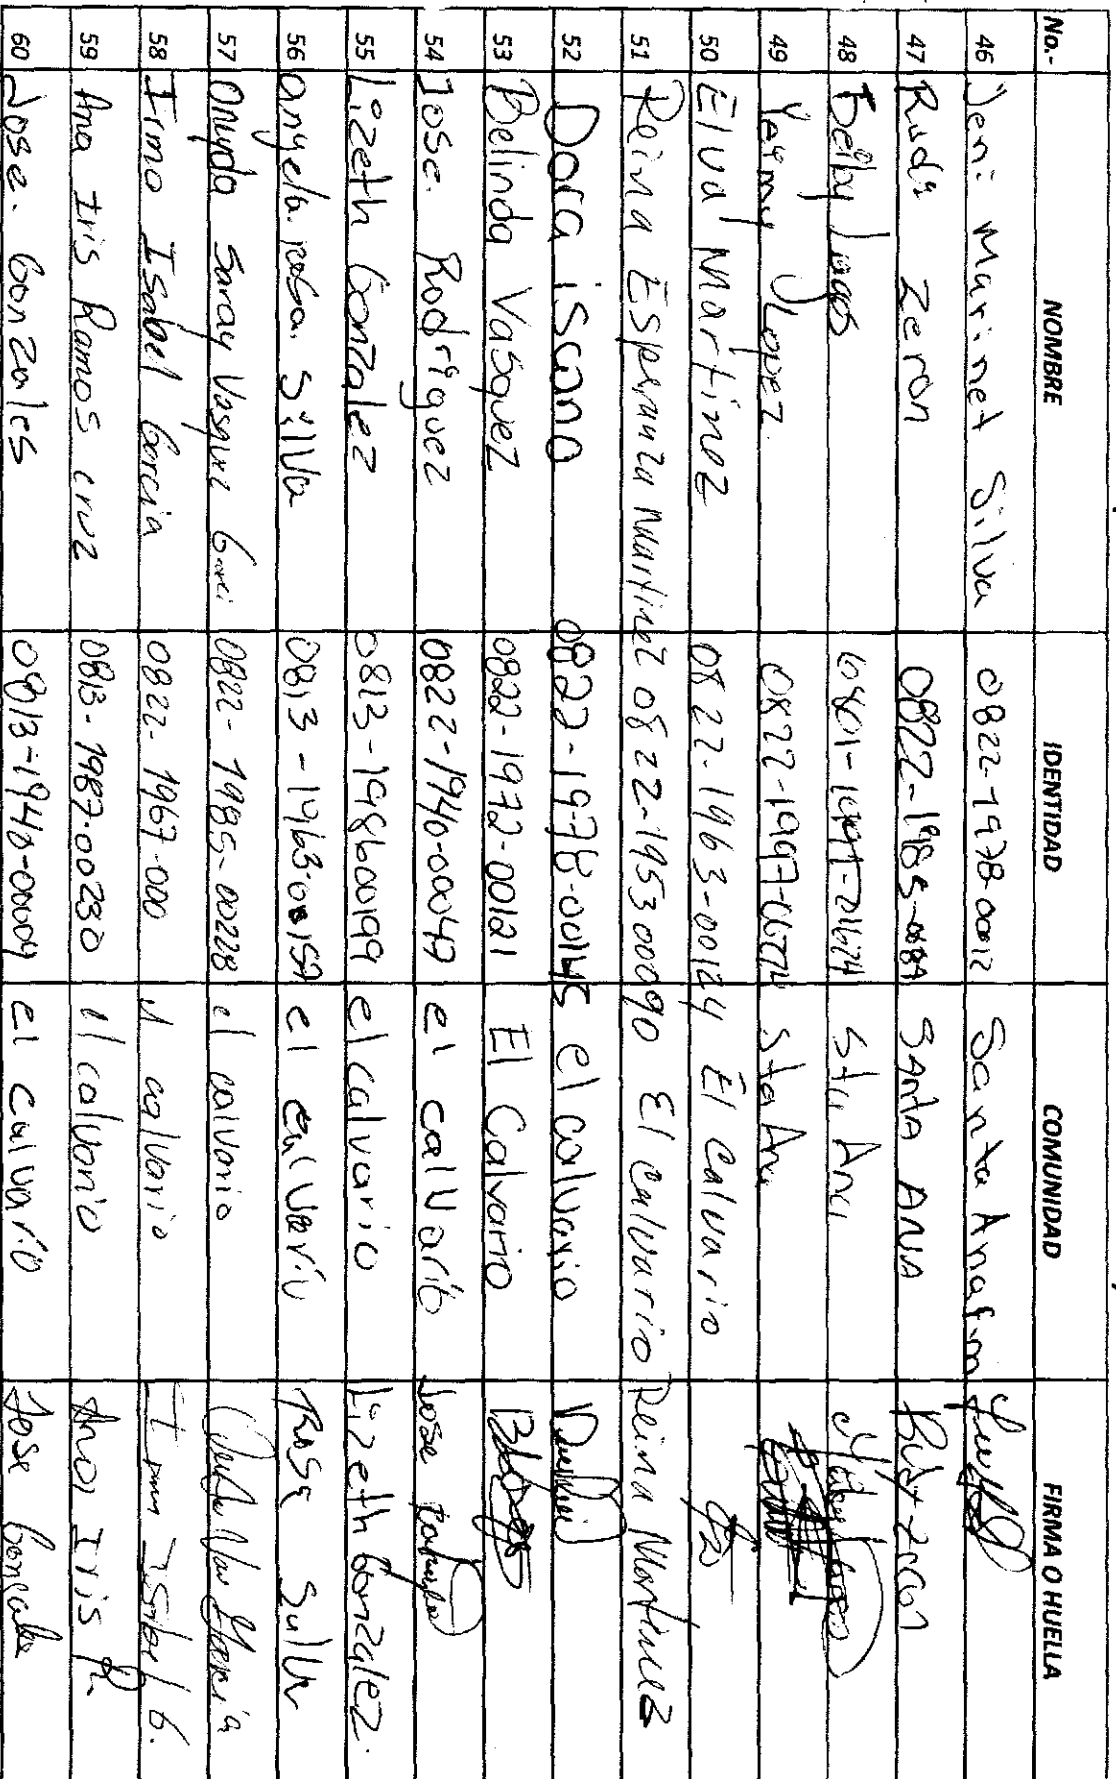 No.- NOMBRE IDENTIDAD COMUNIDAD FIRMA O HUELLA
46 Jeni Marinet Silva 0822-1978-00012 Santa Ana
47 Rudi Zeron 0822-1985- SANTA ANA Rudy Zeron
48 Lagos Sta Ana
49 Yeymy Lopez 0822-1997- Sta Ana
50 Elva Martinez 0822-1963-00124 El Calvario
51 Reina Esperanza Martinez 0822-1953 00090 El Calvario Reina Martinez
52 Dora iscano 0822-1978-00145 el calvario
53 Belinda Vasquez 0822-1972-00121 El Calvario
54 Jose. Rodriguez 0822-1940-00049 el calvario Jose
55 Lizeth Gonzalez 0813-198600199 el calvario Lizeth Gonzalez.
56 angela rosa silva 0813-1963-00157 el calvario Rosa Silva
57 Saray Vasquez 0822-1985-00228 el calvario
58 Irma Isabel Garcia 0822-1967-000 el calvario Irma Isabel G.
59 Ana Iris Ramos cruz 0813-1987-00230 el calvario Ana Iris R
60 Jose. Gonzales 0813-1940-00009 el calvario Jose Gonzales